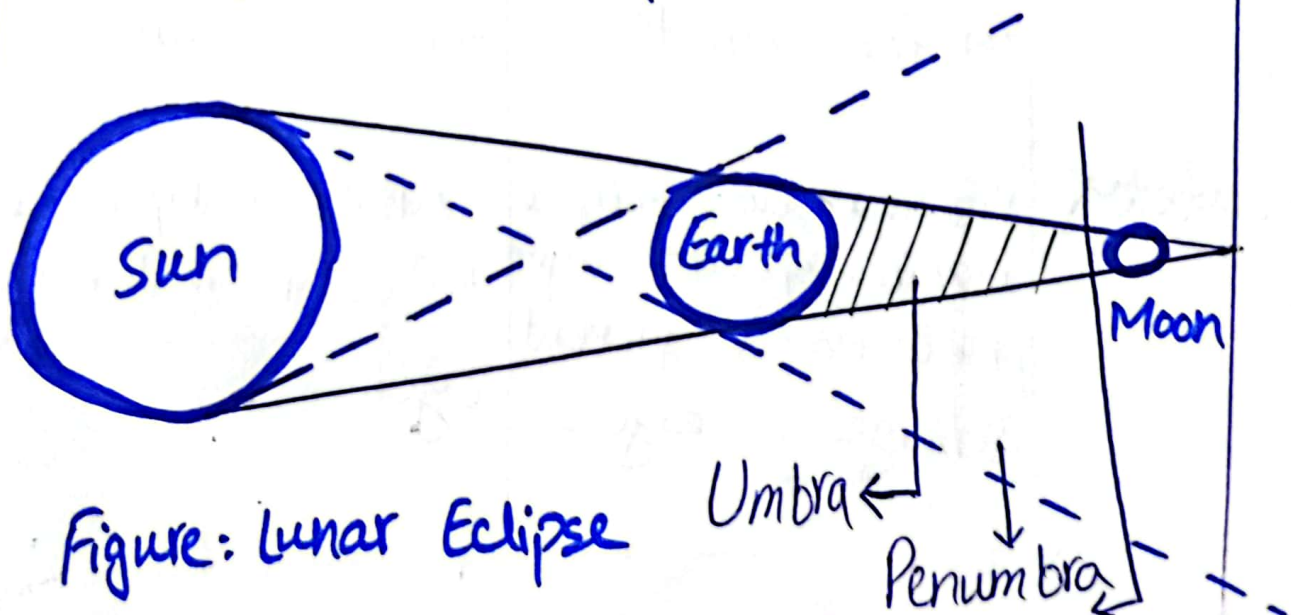 Sun
Earth
Moon
Umbra
Penumbra
Figure: Lunar Eclipse